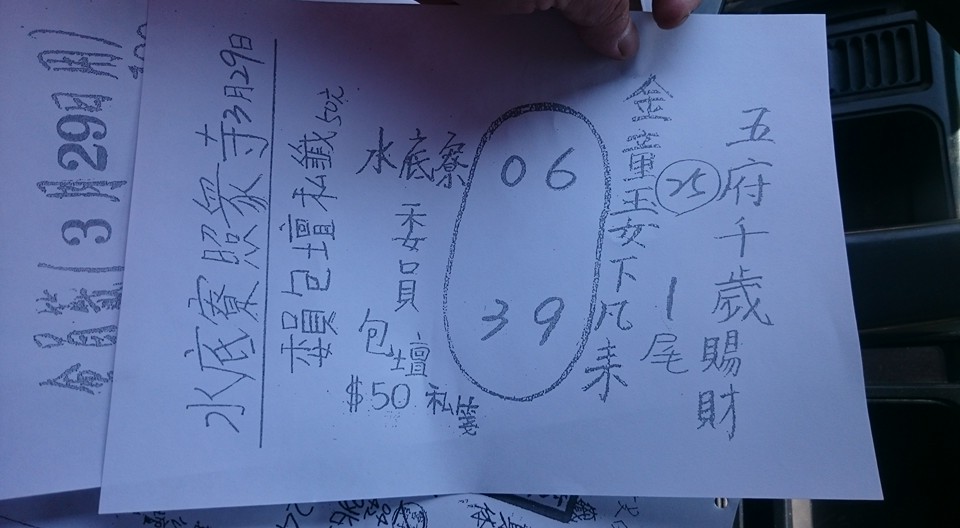 五府千歲賜財
25 1尾
金童玉女下凡來
06
39
水底寮
委員
包壇
$50 私箋
委員包壇私籤50元
水底寮照眾寺3月29日
3月29日用)